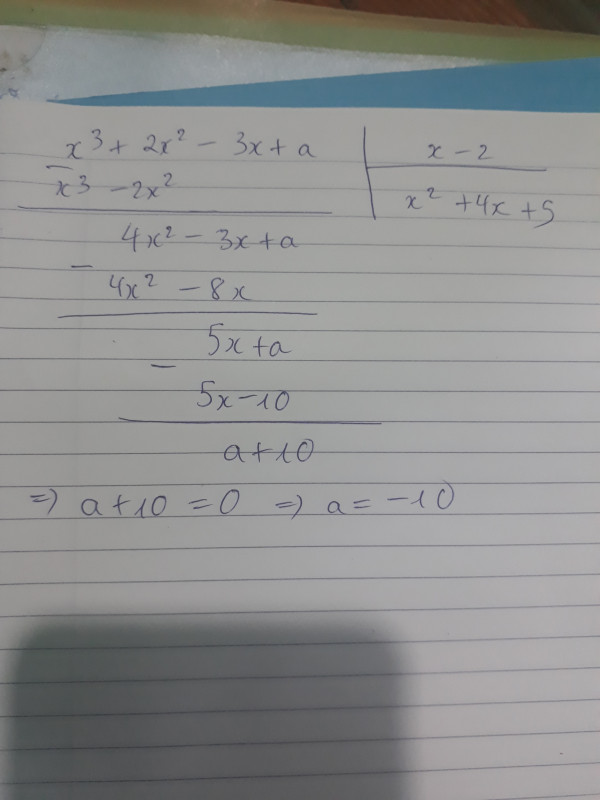 x³ + 2x² - 3x + a | x - 2
- x³ - 2x² | x² + 4x + 5
4x² - 3x + a
- 4x² - 8x
5x + a
- 5x - 10
a + 10
=> a + 10 = 0 => a = -10